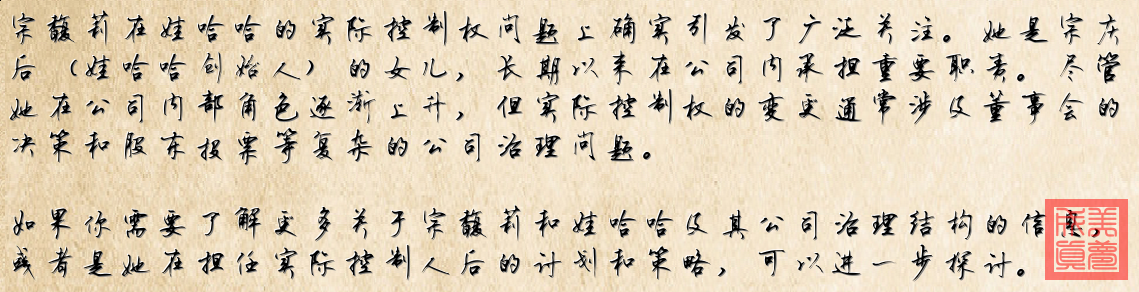 宗馥莉在娃哈哈的实际控制权问题上确实引发了广泛关注。她是宗庆
后（娃哈哈创始人）的女儿，长期以来在公司内承担重要职责。尽管
她在公司内部角色逐渐上升，但实际控制权的变更通常涉及董事会的
决策和股东投票等复杂的公司治理问题。
如果你需要了解更多关于宗馥莉和娃哈哈及其公司治理结构的信息，
或者是她在担任实际控制人后的计划和策略，可以进一步探讨。
美梦
成真